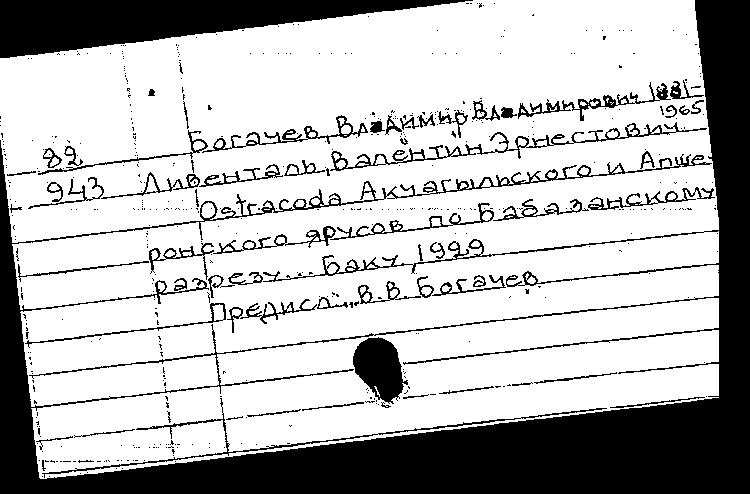 Богачев, Владимир Владимирович 1881-
1965
82
943 Ливенталь, Валентин Эрнестович
Ostracoda Акчагыльского и Апше-
ронского ярусов по Бабазанскому
разрезу... Баку, 1929
Предисл.: В.В. Богачев